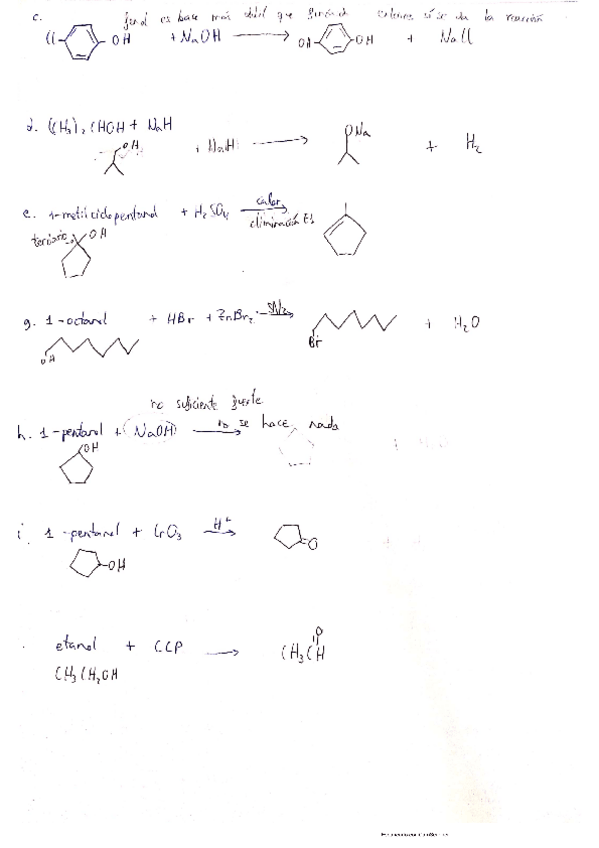 c. fenol es base más débil que entonces sí se da la reacción
Cl- -OH + NaOH → OH- -OH + NaCl
d. (CH3)2CHOH + NaH
OH + NaH → ONa + H2
e. 1-metilciclopentanol + H2SO4 calor → eliminación E1
terciario OH
g. 1-octanol + HBr + ZnBr2 SN2 → Br + H2O
OH
no suficiente fuerte
h. 1-pentanol + NaOH → no se hace nada
OH
i. 1-pentanol + CrO3 H+ → O
-OH
etanol + CCP → CH3CH O
CH3CH2OH